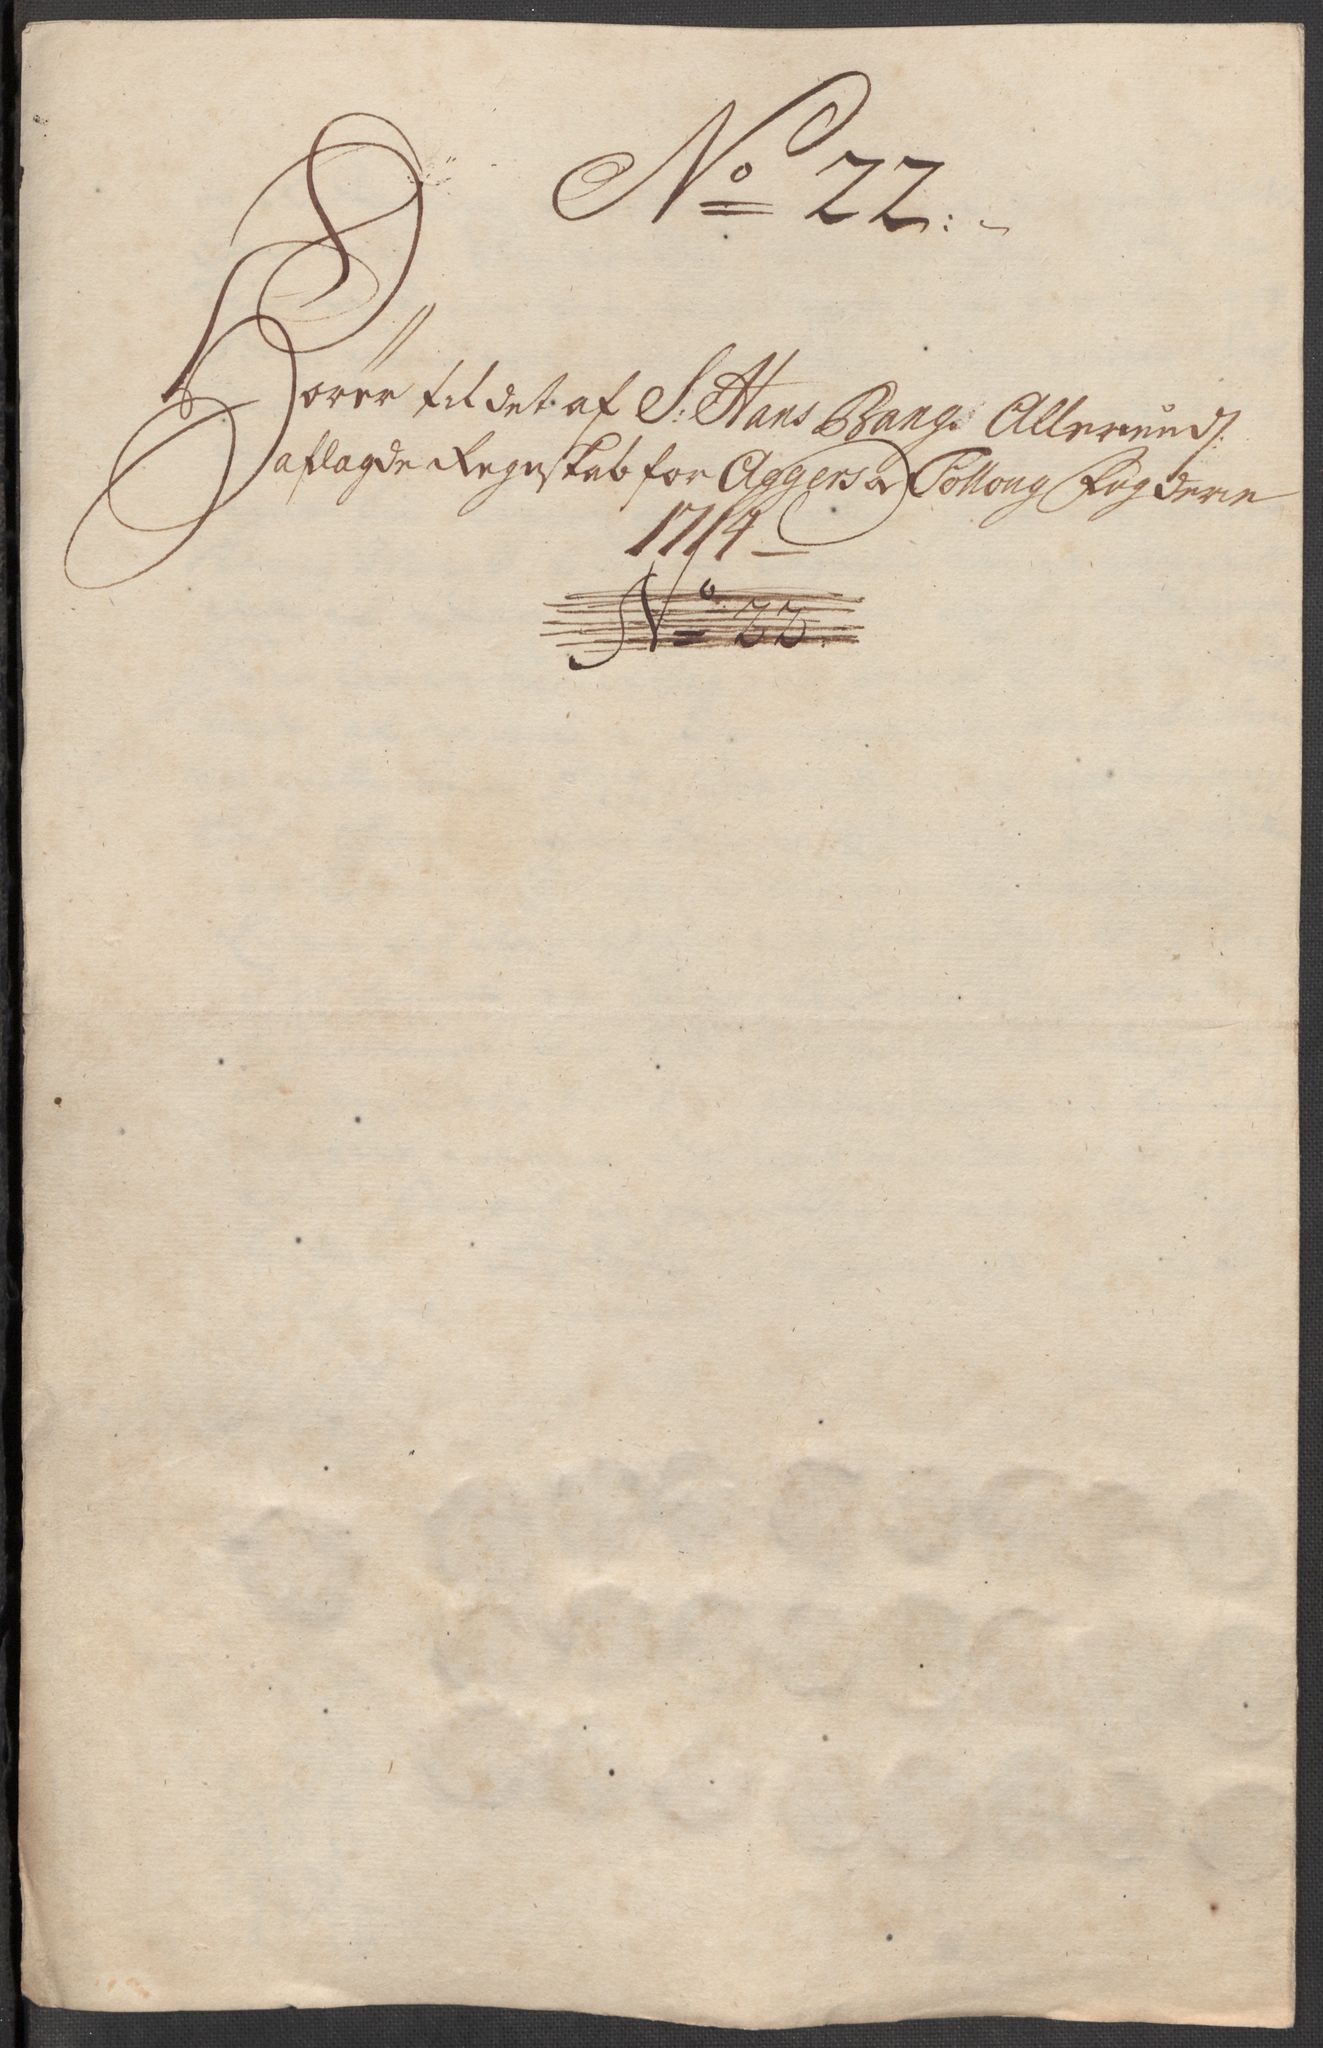 No 22.
Hörer til det af S: Hans Bang
aflagde Regnskab for Aggers og Follong Fogderie
1714
No 22.